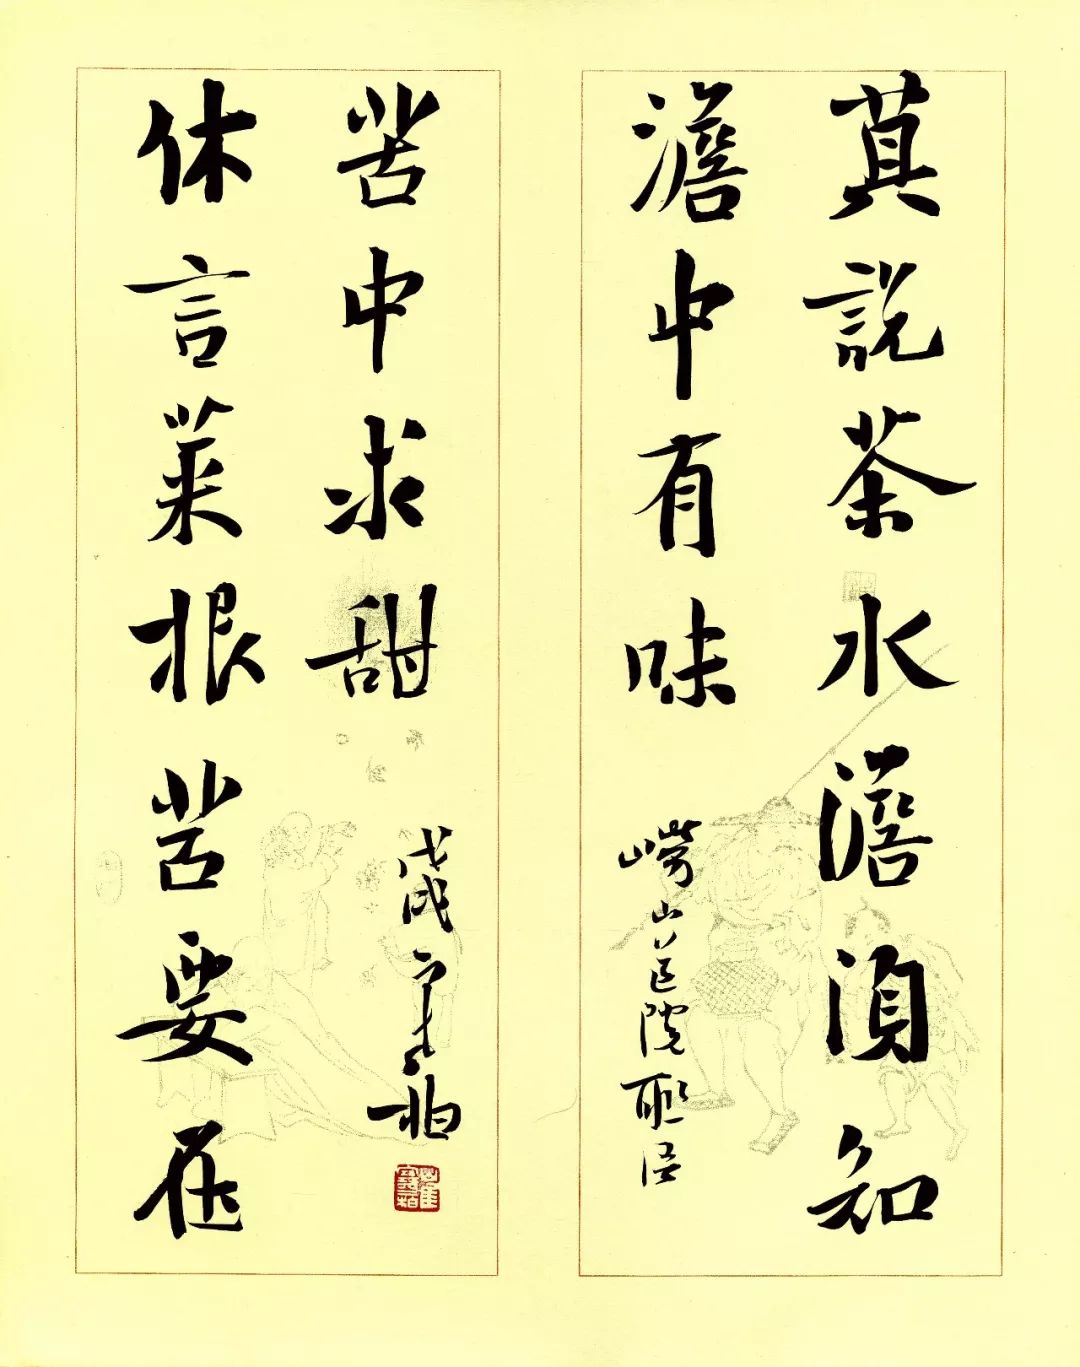 莫說茶水澹須知
澹中有味
嶗山道院聯語
休言菜根苦要在
苦中求甜
戊戌柏